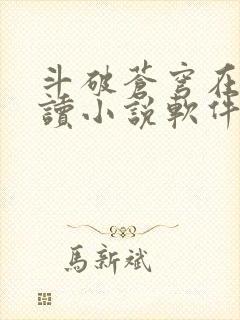 斗破蒼穹在
讀小説軟件
馬新斌